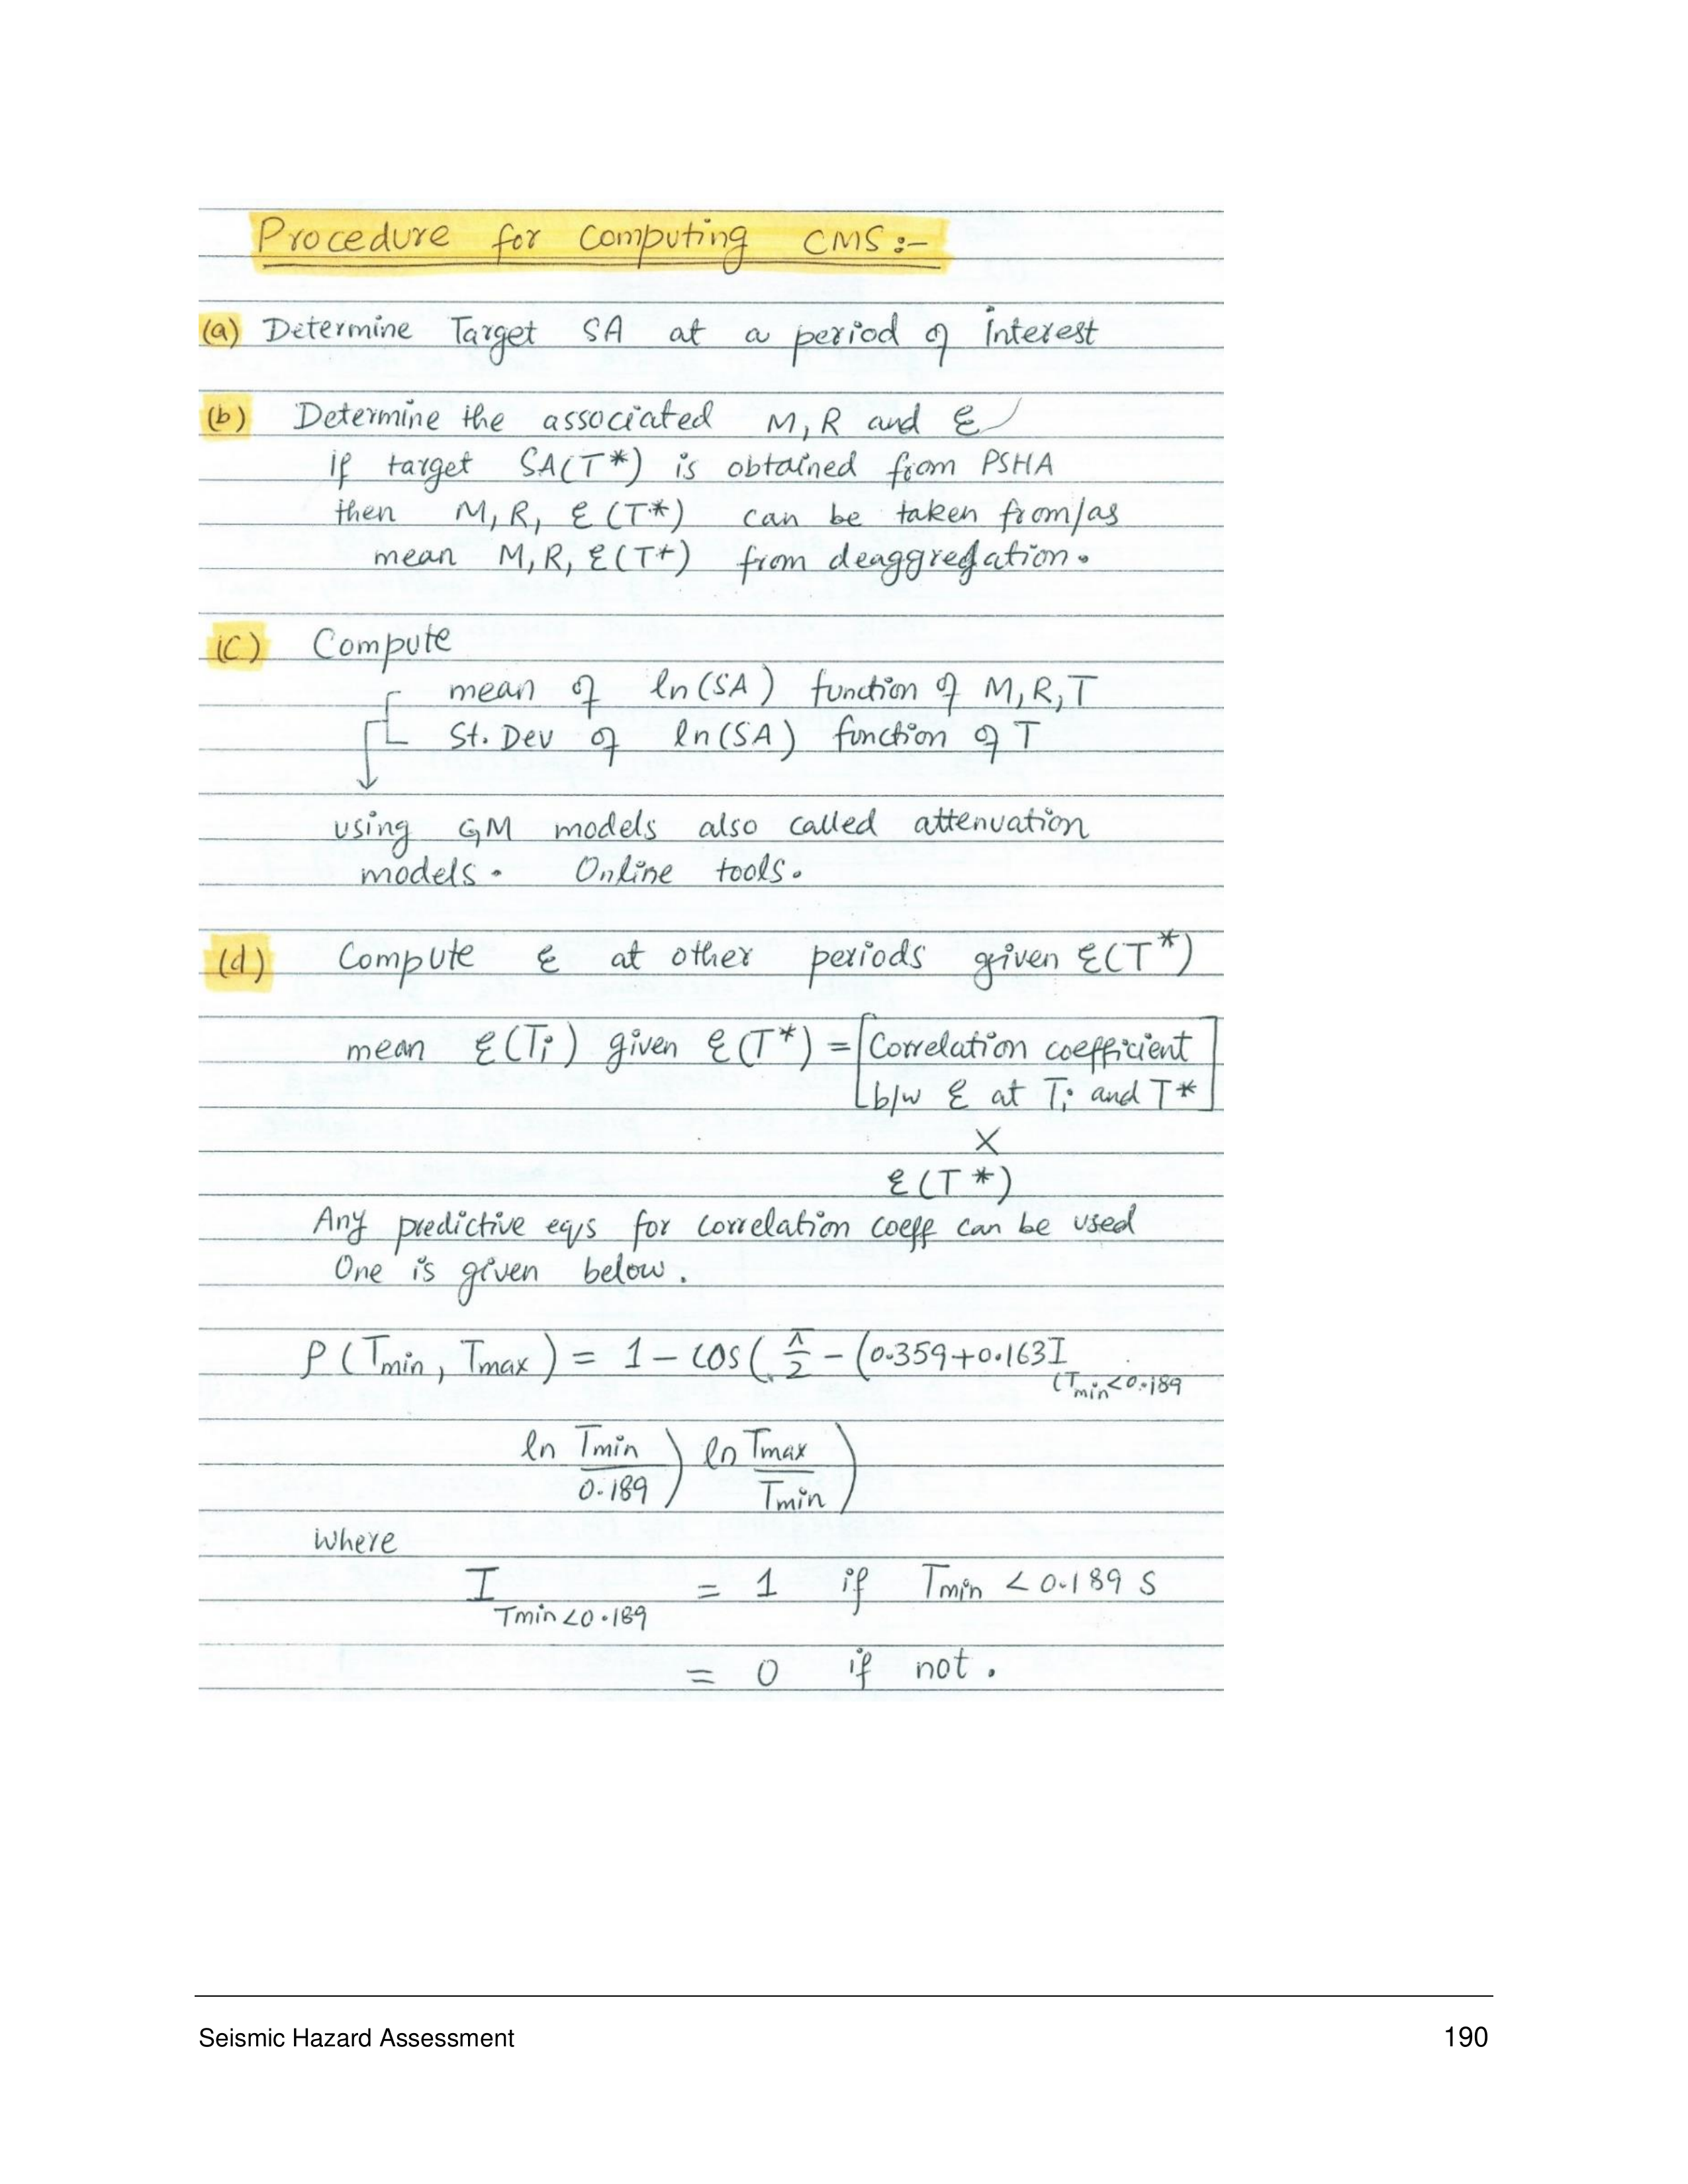 Procedure for Computing CMS :-
(a) Determine Target SA at a period of interest
(b) Determine the associated M, R and ε
if target SA(T*) is obtained from PSHA
then M, R, ε(T*) can be taken from/as
mean M, R, ε(T*) from deaggregation.
(c) Compute
mean of ln(SA) function of M, R, T
St. Dev of ln(SA) function of T
using GM models also called attenuation
models. Online tools.
(d) Compute ε at other periods given ε(T*)
mean ε(Ti) given ε(T*) = [Correlation coefficient
b/w ε at Ti and T*]
×
ε(T*)
Any predictive eqs for correlation coeff can be used
One is given below.
ρ(Tmin, Tmax) = 1 - cos(π/2 - (0.359+0.163I
(Tmin<0.189
ln Tmin/0.189) ln Tmax/Tmin)
where
I Tmin<0.189 = 1 if Tmin < 0.189 S
= 0 if not.
Seismic Hazard Assessment 190